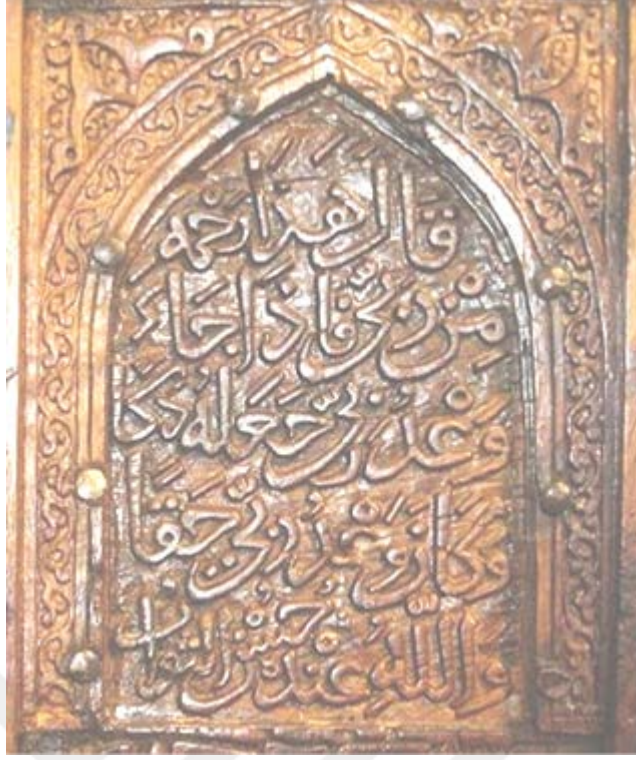 قَالَ هَذَا رَحْمَه
مِنْ رَبِّي فَاِذَا جَاءَ
وَعْدُ رَبِّي جَعَلَهُ دَكَّا
وَكَانَ وَعْدُ رَبِّي حَقَّا
وَاللّٰهُ عِنْدَهُ حُسْنُ الثَّوَابِ